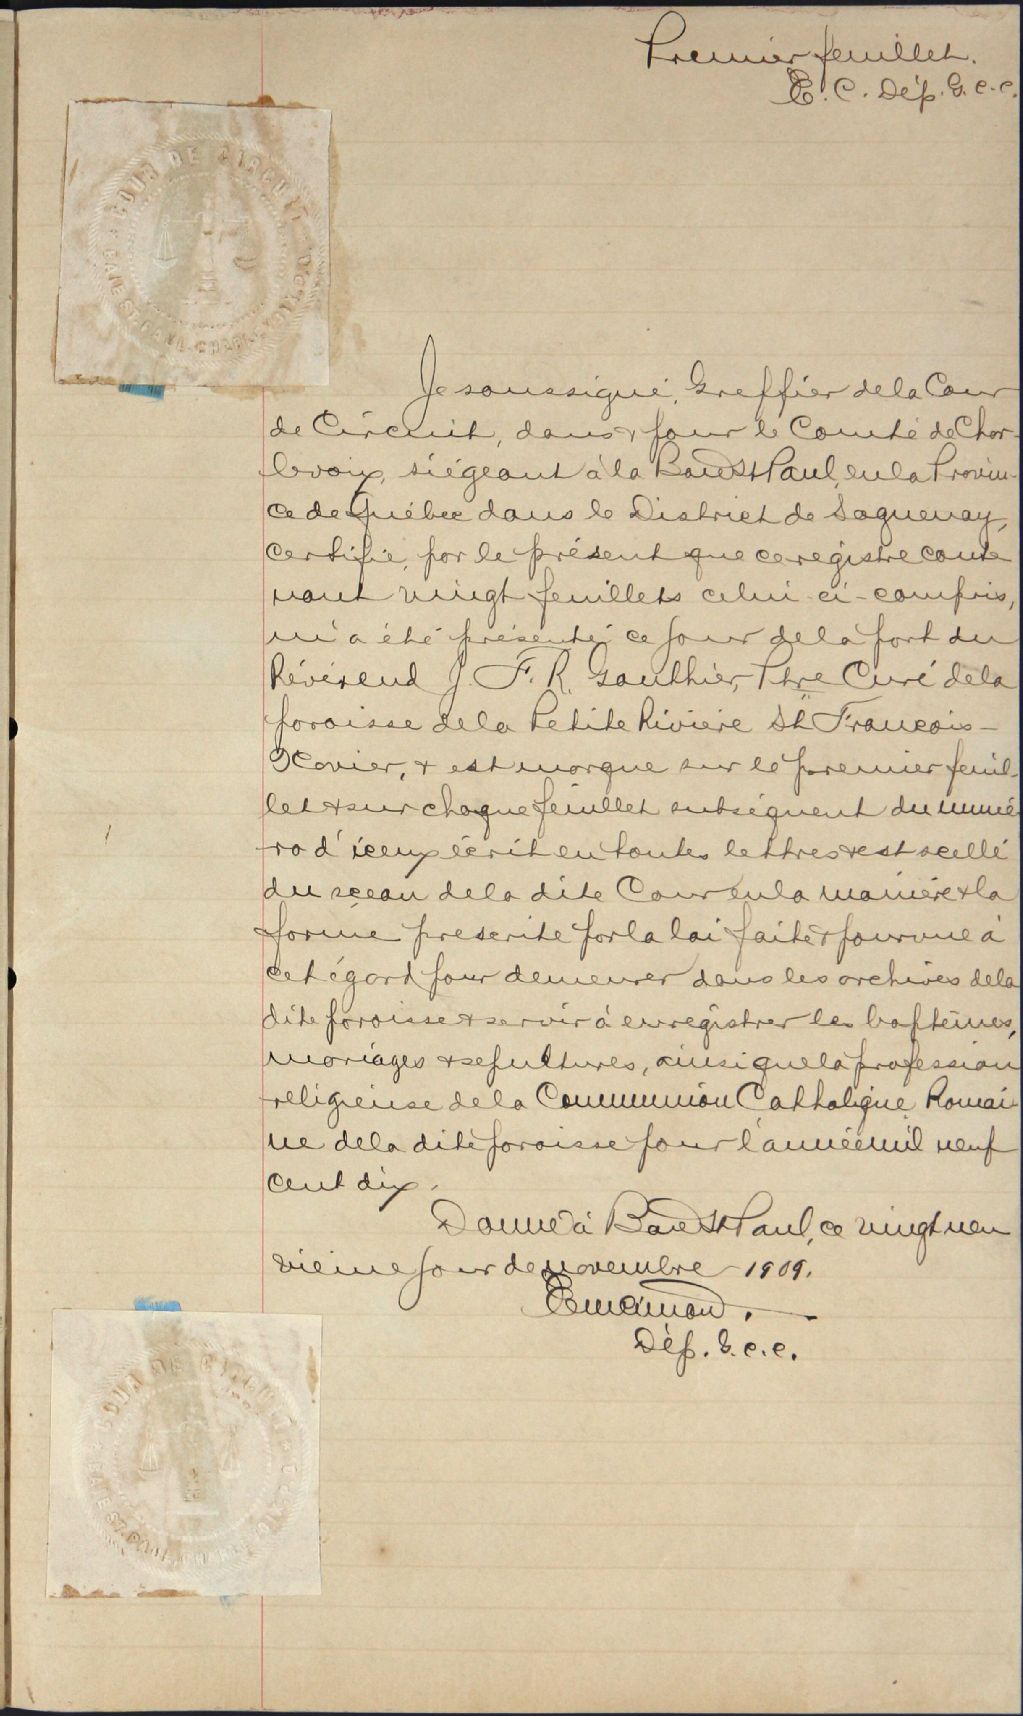 Premier feuillet.
E. C. Dép. G. C. C.
COUR DE CIRCUIT
BAIE ST. PAUL
Je soussigné, Greffier de la Cour
de Circuit, dans & pour le Comté de Char-
levoix, siégeant à la Baie St Paul, en la Provin-
ce de Québec dans le District de Saguenay,
certifie, par le présent que ce registre conte
nant vingt feuillets celui-ci-compris,
m'a été présenté ce jour de la part du
Révérend J. F. R. Gauthier, Ptre Curé de la
paroisse de la Petite Rivière St François-
Xavier, & est marque sur le premier feuil-
let & sur chaque feuillet subséquent du numé
ro d'iceux écrit en toutes lettres & est scellé
du sceau de la dite Cour en la manière & la
forme prescrite par la loi faite & pourvue à
cet égard pour demeurer dans les archives de la
dite paroisse & servir à enregistrer les baptêmes,
mariages & sepultures, ainsi que la profession
religieuse de la Communion Catholique Romai-
ne de la dite paroisse pour l'année mil neuf
cent dix.
Donné à Baie St Paul, ce vingt neu
vieme jour de novembre 1909.
Dép. G. C. C.
COUR DE CIRCUIT
BAIE ST. PAUL